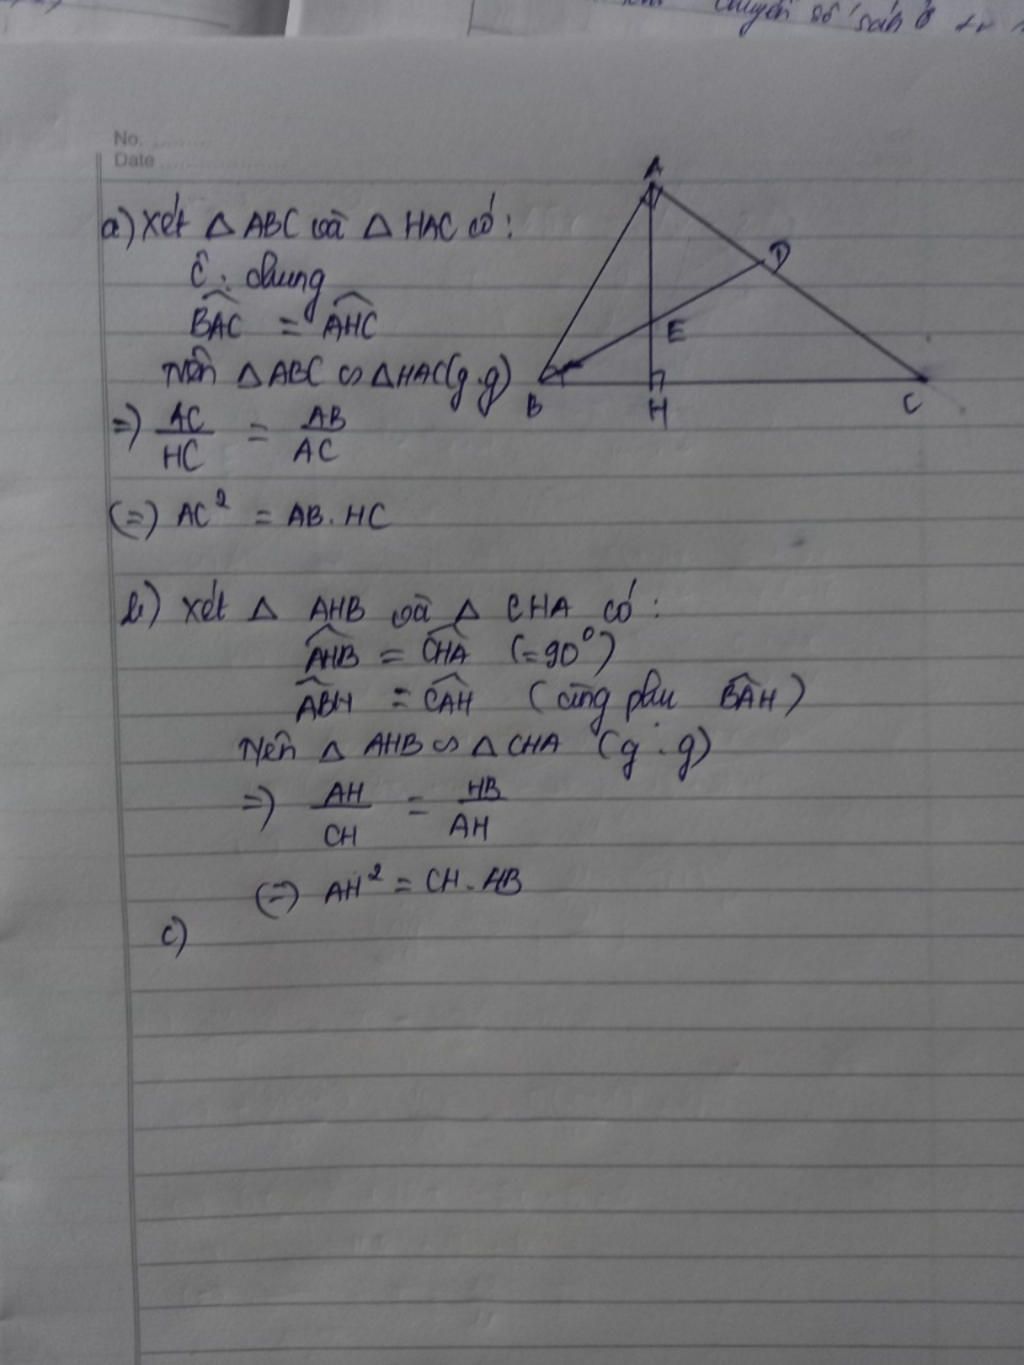 chuyển số sánh ở
No. ..........
Date ....................
a) Xét △ ABC và △ HAC có:
Ĉ: chung
B̂AC = ÂHC
Nên △ABC ∽ △HAC(g.g)
=) AC/HC = AB/AC
(=) AC² = AB.HC
A
D
E
B
H
C
b) Xét △ AHB và △ CHA có:
ÂHB = ĈHA (=90⁰)
ÂBH = ĈAH (cùng phụ B̂AH)
Nên △ AHB ∽ △CHA (g.g)
=) AH/CH = HB/AH
(=) AH² = CH.HB
c)